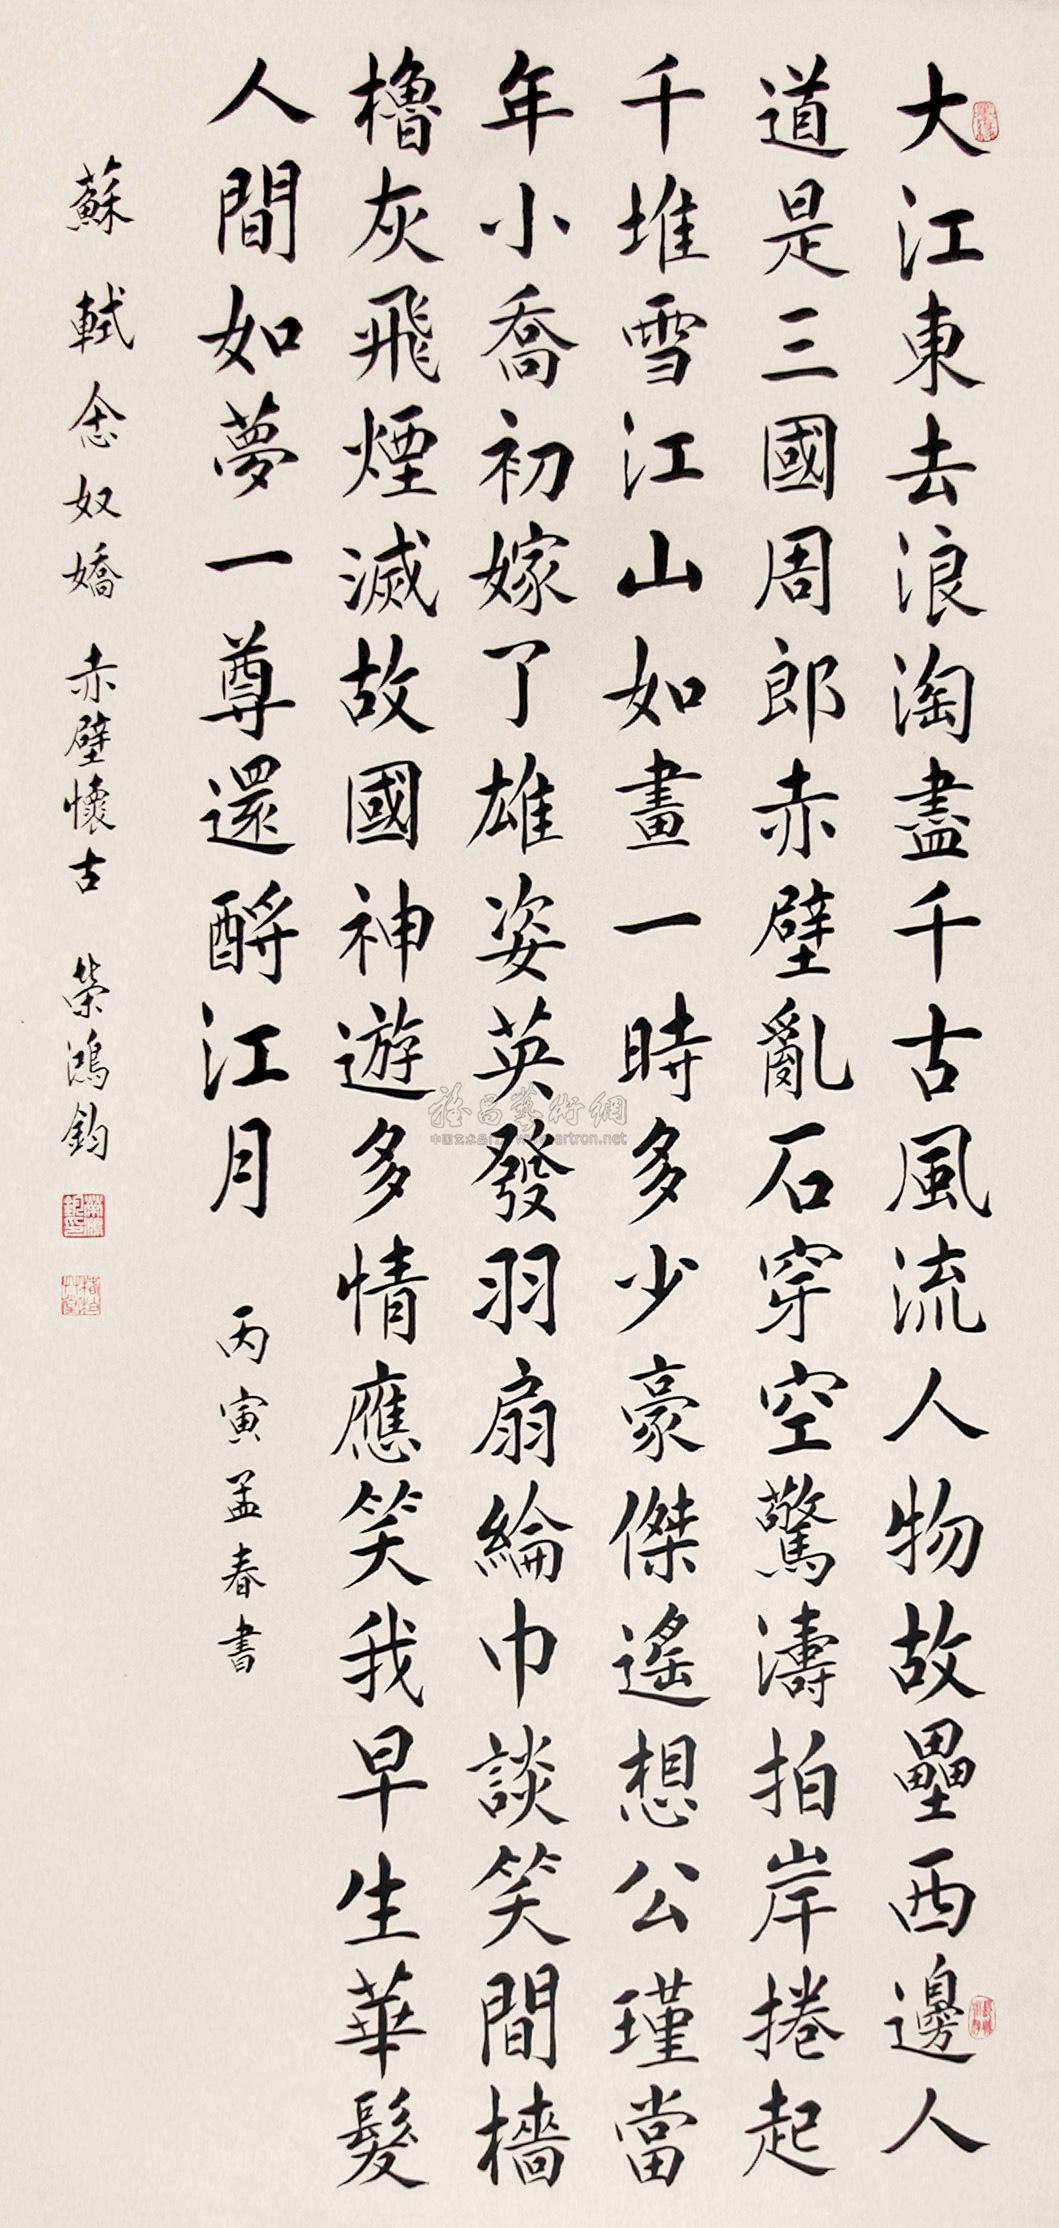 大江東去浪淘盡千古風流人物故壘西邊人
道是三國周郎赤壁亂石穿空驚濤拍岸捲起
千堆雪江山如畫一時多少豪傑遙想公瑾當
年小喬初嫁了雄姿英發羽扇綸巾談笑間檣
櫓灰飛煙滅故國神遊多情應笑我早生華髮
人間如夢一尊還酹江月
丙寅孟春書
蘇軾念奴嬌 赤壁懷古 榮鴻鈞
雅昌藝術網
artron.net